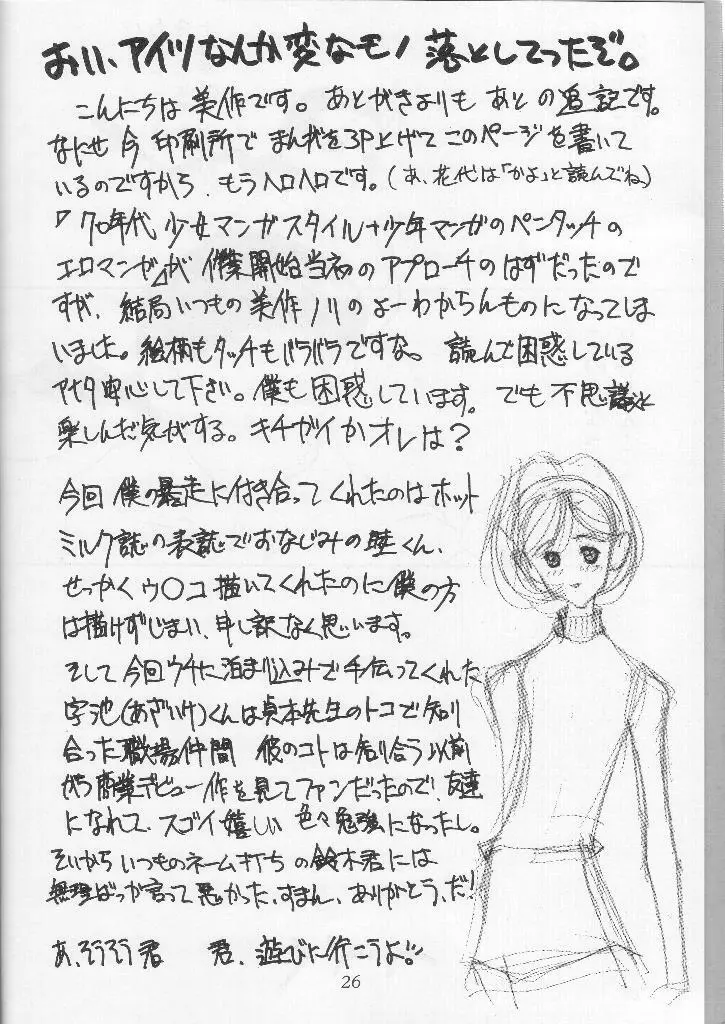 おいい、アイツなんか変なモノ落としてったぞ。
こんにちは美作です。あとがきよりもあとの追記です。
なにせ今印刷所でまんがを3P上げてこのページを書いて
いるのですから、もうヘロヘロです。(あ、花代は「かよ」と読んでね。)
『70年代少女マンガスタイル+少年マンガのペンタッチの
エロマンガ』が作業開始当初のアプローチのはずだったので
すが、結局いつもの美作ノリのよーわからんものになってしま
いました。絵柄もタッチもバラバラですな。読んで困惑している
アナタ安心して下さい。僕も困惑しています。でも不思議と
楽しんだ気がする。キチガイかオレは?
今回僕の暴走に付き合ってくれたのはホット
ミルク誌の表誌でおなじみの くん、
せっかくウ〇コ描いてくれたのに僕の方
は描けずじまい、申し訳なく思います。
そして今回ウチに泊まり込みで手伝ってくれた
字池(あざいけ)くんは貞本先生のトコで知り
合った職場仲間 彼のコトは知り合う以前
から商業デビュー作を見てファンだったので、友達
になれて、スゴイ嬉しい 色々勉強になったし。
それからいつものネーム打ちの鈴木君には
無理ばっか言って悪かった、すまん、ありがとう、だ!
あ、そうそう君 君、遊びに行こうよ!!
26